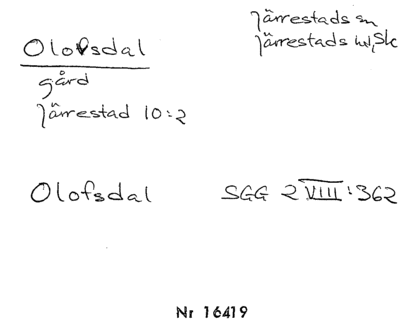 Järrestads sn
Olofsdal
Järrestads hd, Sk
gård
Järrestad 10:2
Olofsdal SGG 2 VIII: 362
Nr 16419